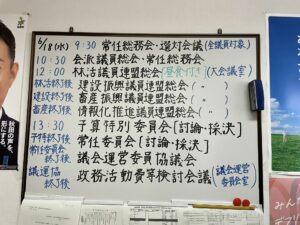 6/18(水) 9:30 常任総務会・選対会議(全議員対象)
10:30 会派議員総会・常任総務会
12:00 林活議員連盟総会(昼食付き)(大会議室)
林活終了後 建設振興議員連盟総会( 〃 )
建設終了後 畜産振興議員連盟総会( 〃 )
畜産終了後 情報化推進議員連盟総会( 〃 )
13:30 予算特別委員会[討論・採決]
予特終了後 常任委員会[討論・採決]
常任委員会終了後 議会運営委員協議会
議運協終了後 政務活動費等検討会議(議会運営委員会室)
秋田の声を、
形にする。